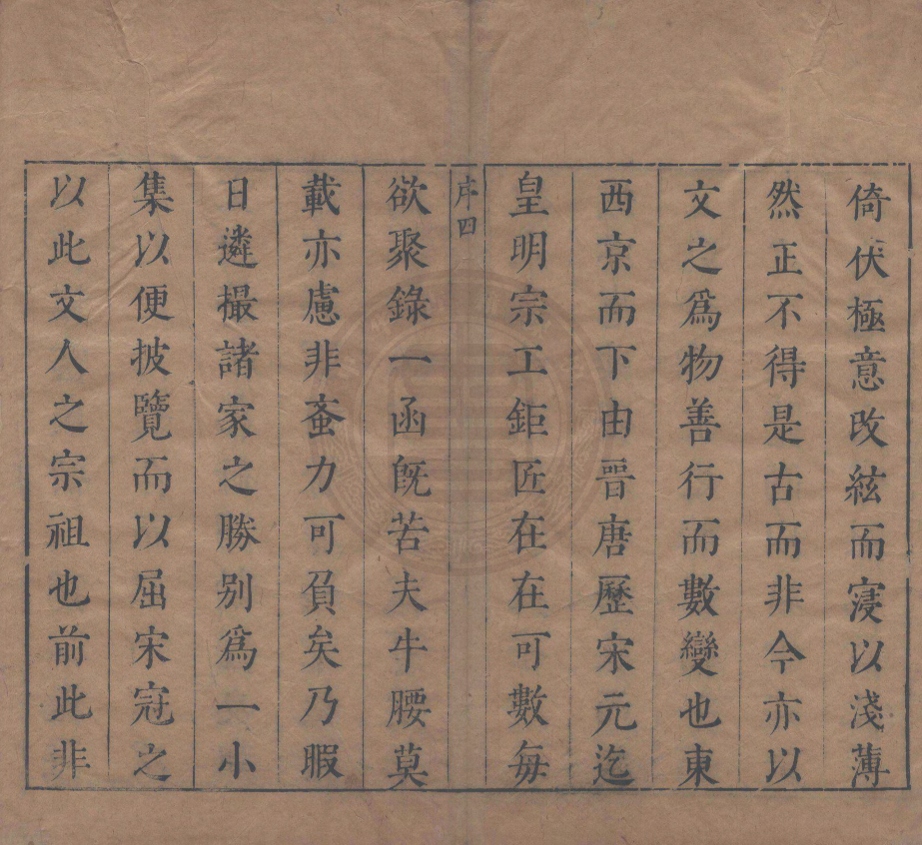 倚伏極意改絃而寖以淺薄
然正不得是古而非今亦以
文之爲物善行而數變也東
西京而下由晉唐歷宋元迄
皇明宗工鉅匠在在可數每
序四
欲聚錄一函旣苦夫牛腰莫
載亦慮非蚉力可負矣乃暇
日遴撮諸家之勝別爲一小
集以便披覽而以屈宋冠之
以此文人之宗祖也前此非